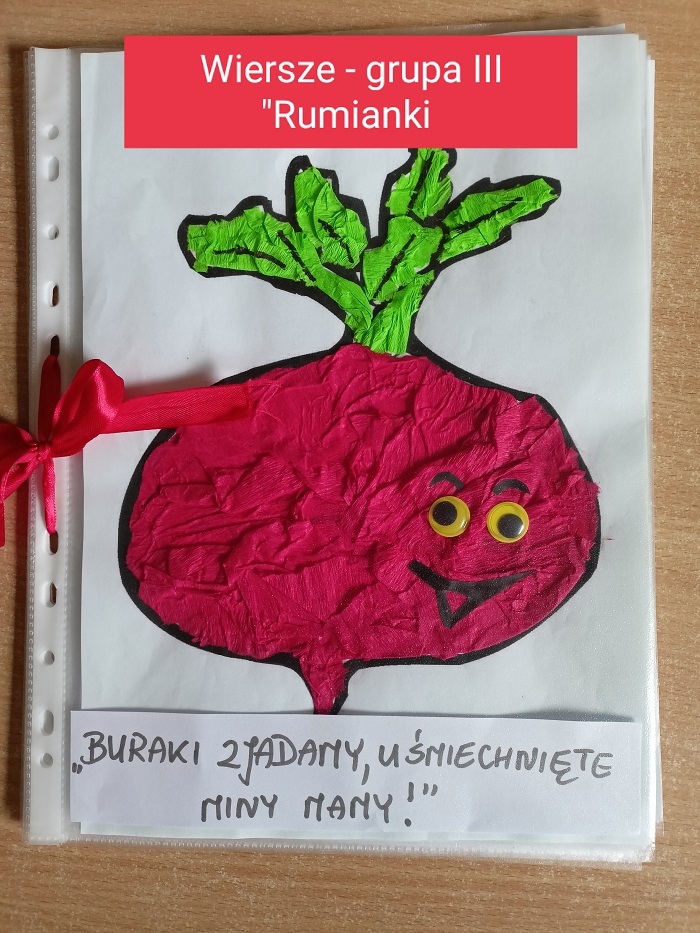 Wiersze - grupa III
"Rumianki
„BURAKI ZJADAMY, UŚMIECHNIĘTE
MINY MAMY!”